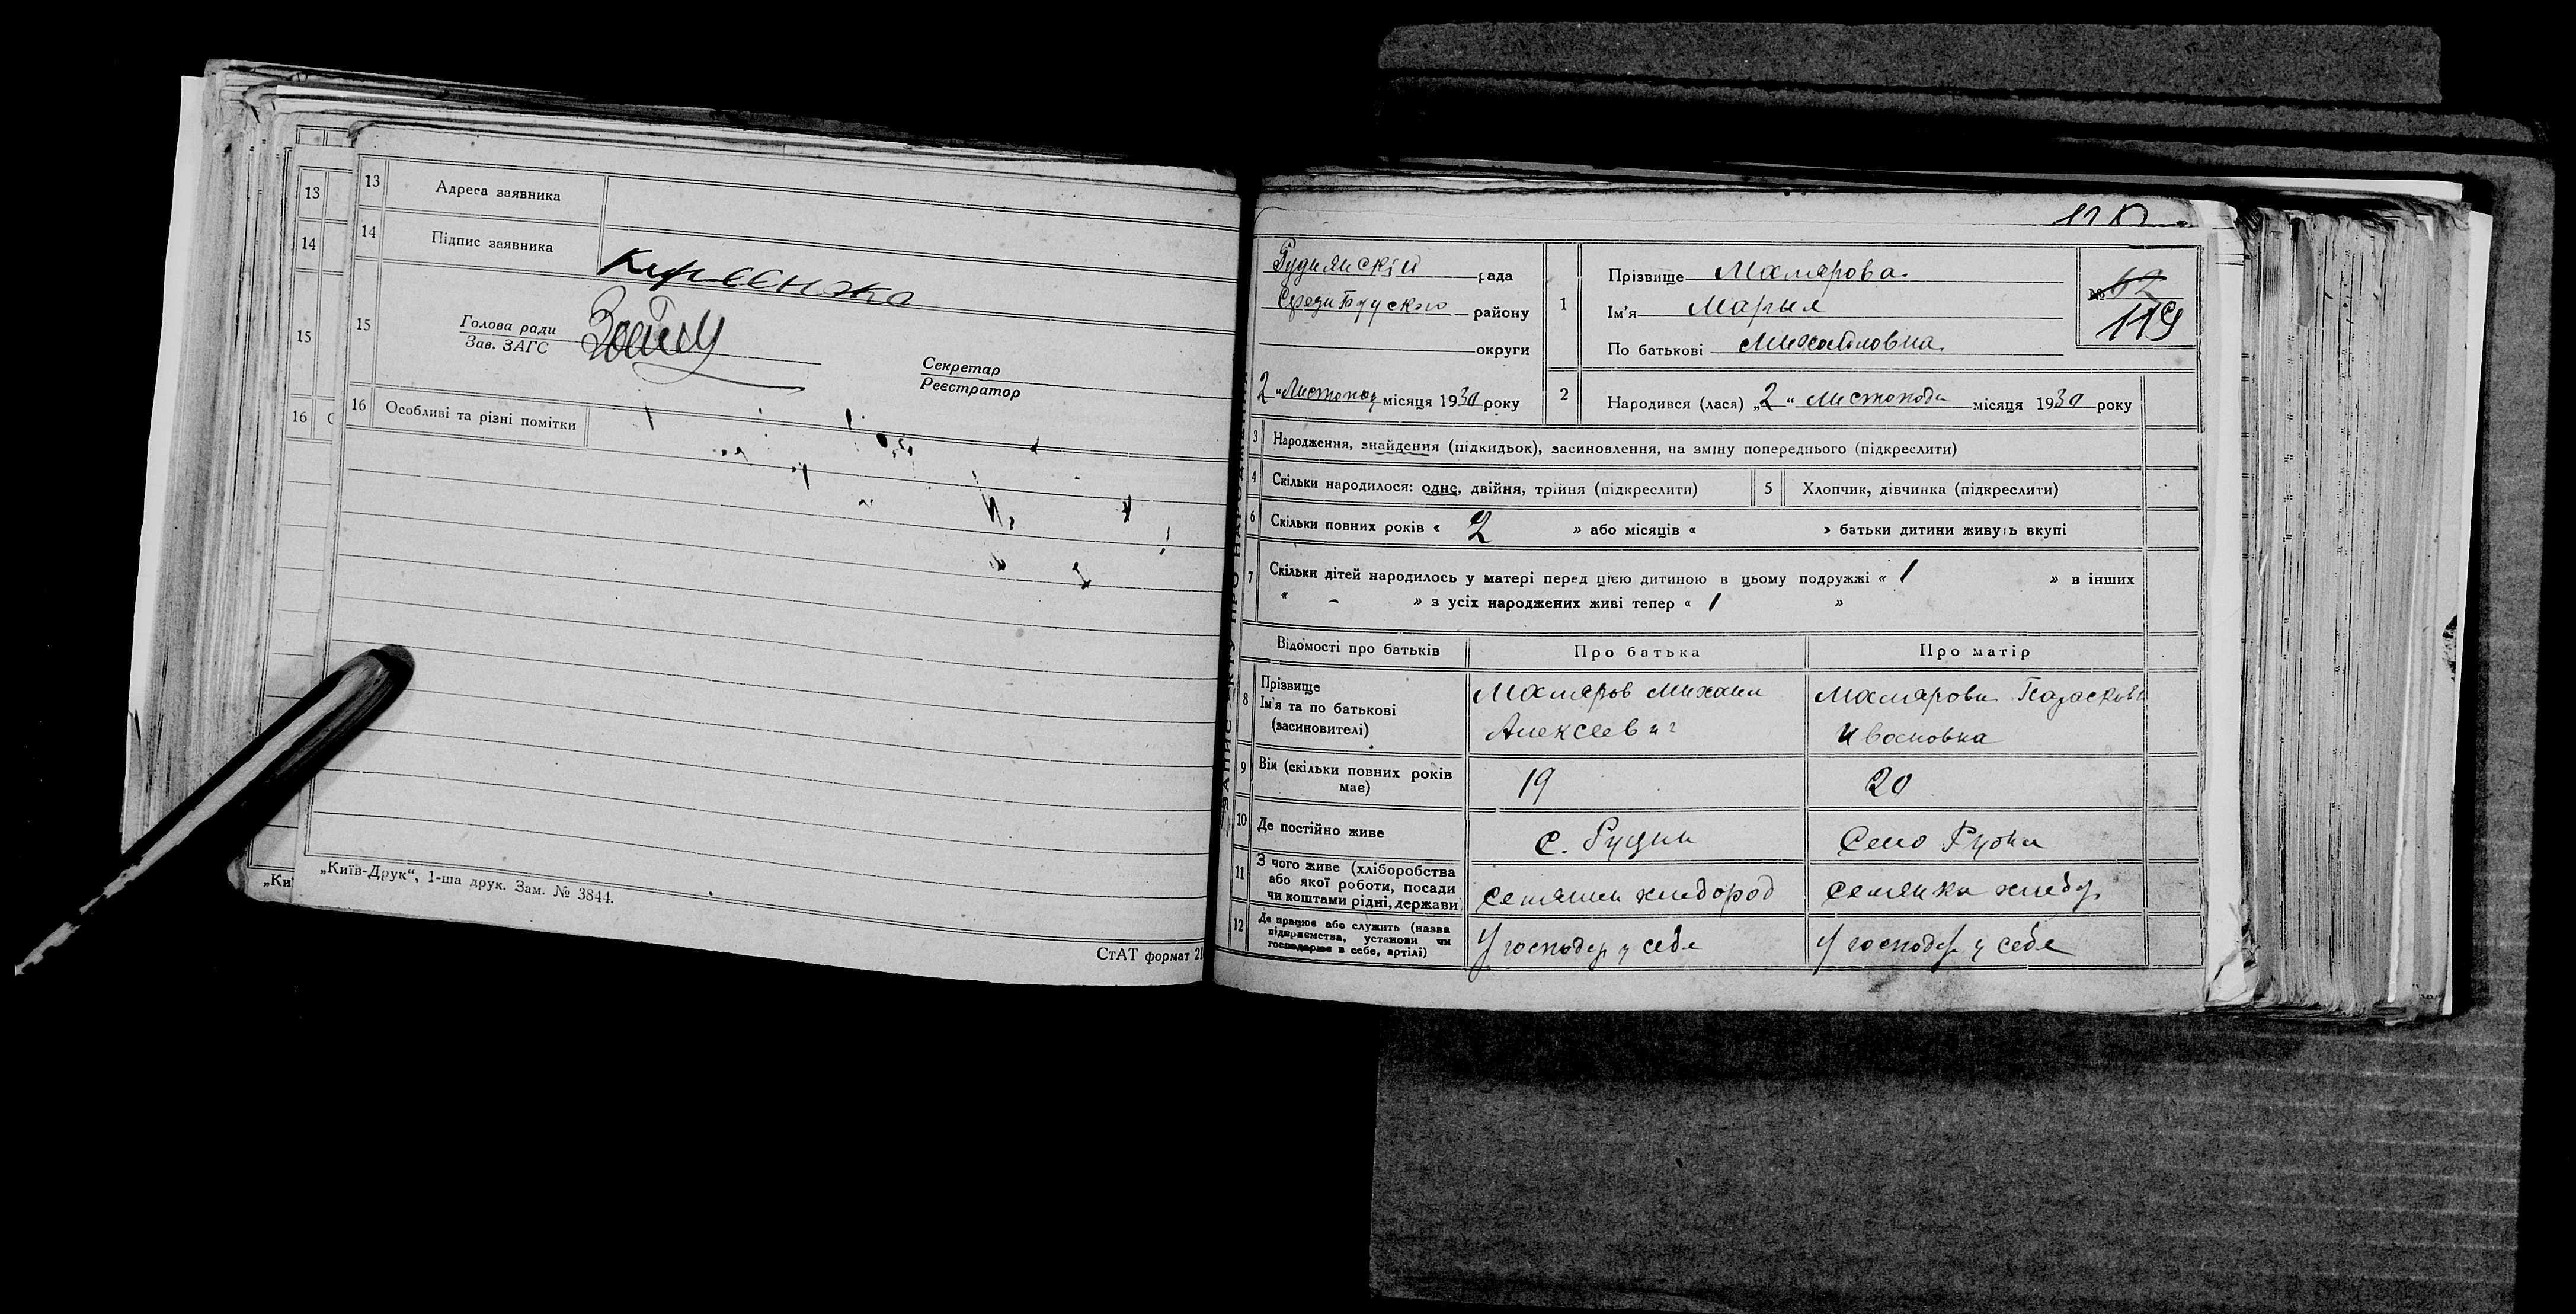 13
14
15
16
„Киї
13 Адреса заявника
14 Підпис заявника
15 Голова ради
Зав. ЗАГС
Секретар
Реєстратор
16 Особливі та різні помітки
„Київ-Друк“, 1-ша друк. Зам. № 3844.
СтАТ формат 21
ЗАПИС АКТУ ПРО НАРОДЖЕННЯ
Рудиянский рада
району
округи
2 „Листопад місяця 1930 року
1 Прізвище Малярова
Ім'я Мария
По батькові Михайловна
№ 62
119
2 Народився (лася) „2“ Листопода місяця 1930 року
3 Народження, знайдення (підкидьок), засиновлення, на зміну попереднього (підкреслити)
4 Скільки народилося: одне, двійня, трійня (підкреслити)
5 Хлопчик, дівчинка (підкреслити)
6 Скільки повних років « 2 » або місяців « » батьки дитини живуть вкупі
7 Скільки дітей народилось у матері перед цією дитиною в цьому подружжі « 1 » в інших
« - » з усіх народжених живі тепер « 1 »
Відомості про батьків Про батька Про матір
8 Прізвище
Ім'я та по батькові
(засиновителі)
Маляров Михаил
Алексеевич
Малярова Параскови
Ивановна
9 Вік (скільки повних років
має)
19
20
10 Де постійно живе
с. Рудни
Село Рудни
11 З чого живе (хліборобства
або якої роботи, посади
чи коштами рідні, держави
селянин хлебород
селянка хлебор
12 Де працює або служить (назва
підприємства, установи чи
господарює в себе, артілі)
У господар у себе
У господ у себе